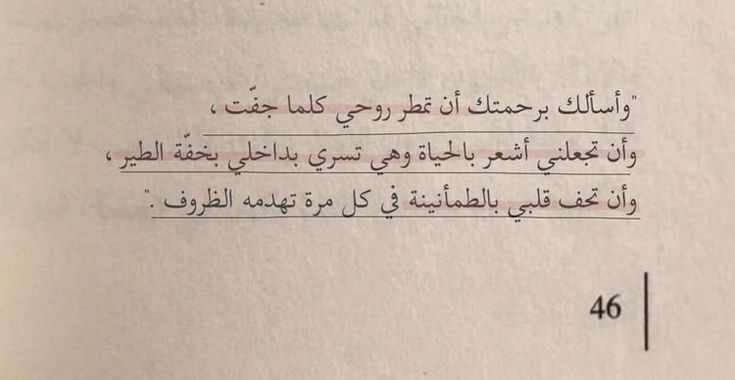 "وأسألك برحمتك أن تمطر روحي كلما جفّت ،
وأن تجعلني أشعر بالحياة وهي تسري بداخلي بخفّة الطير ،
وأن تحف قلبي بالطمأنينة في كل مرة تهدمه الظروف ."
46